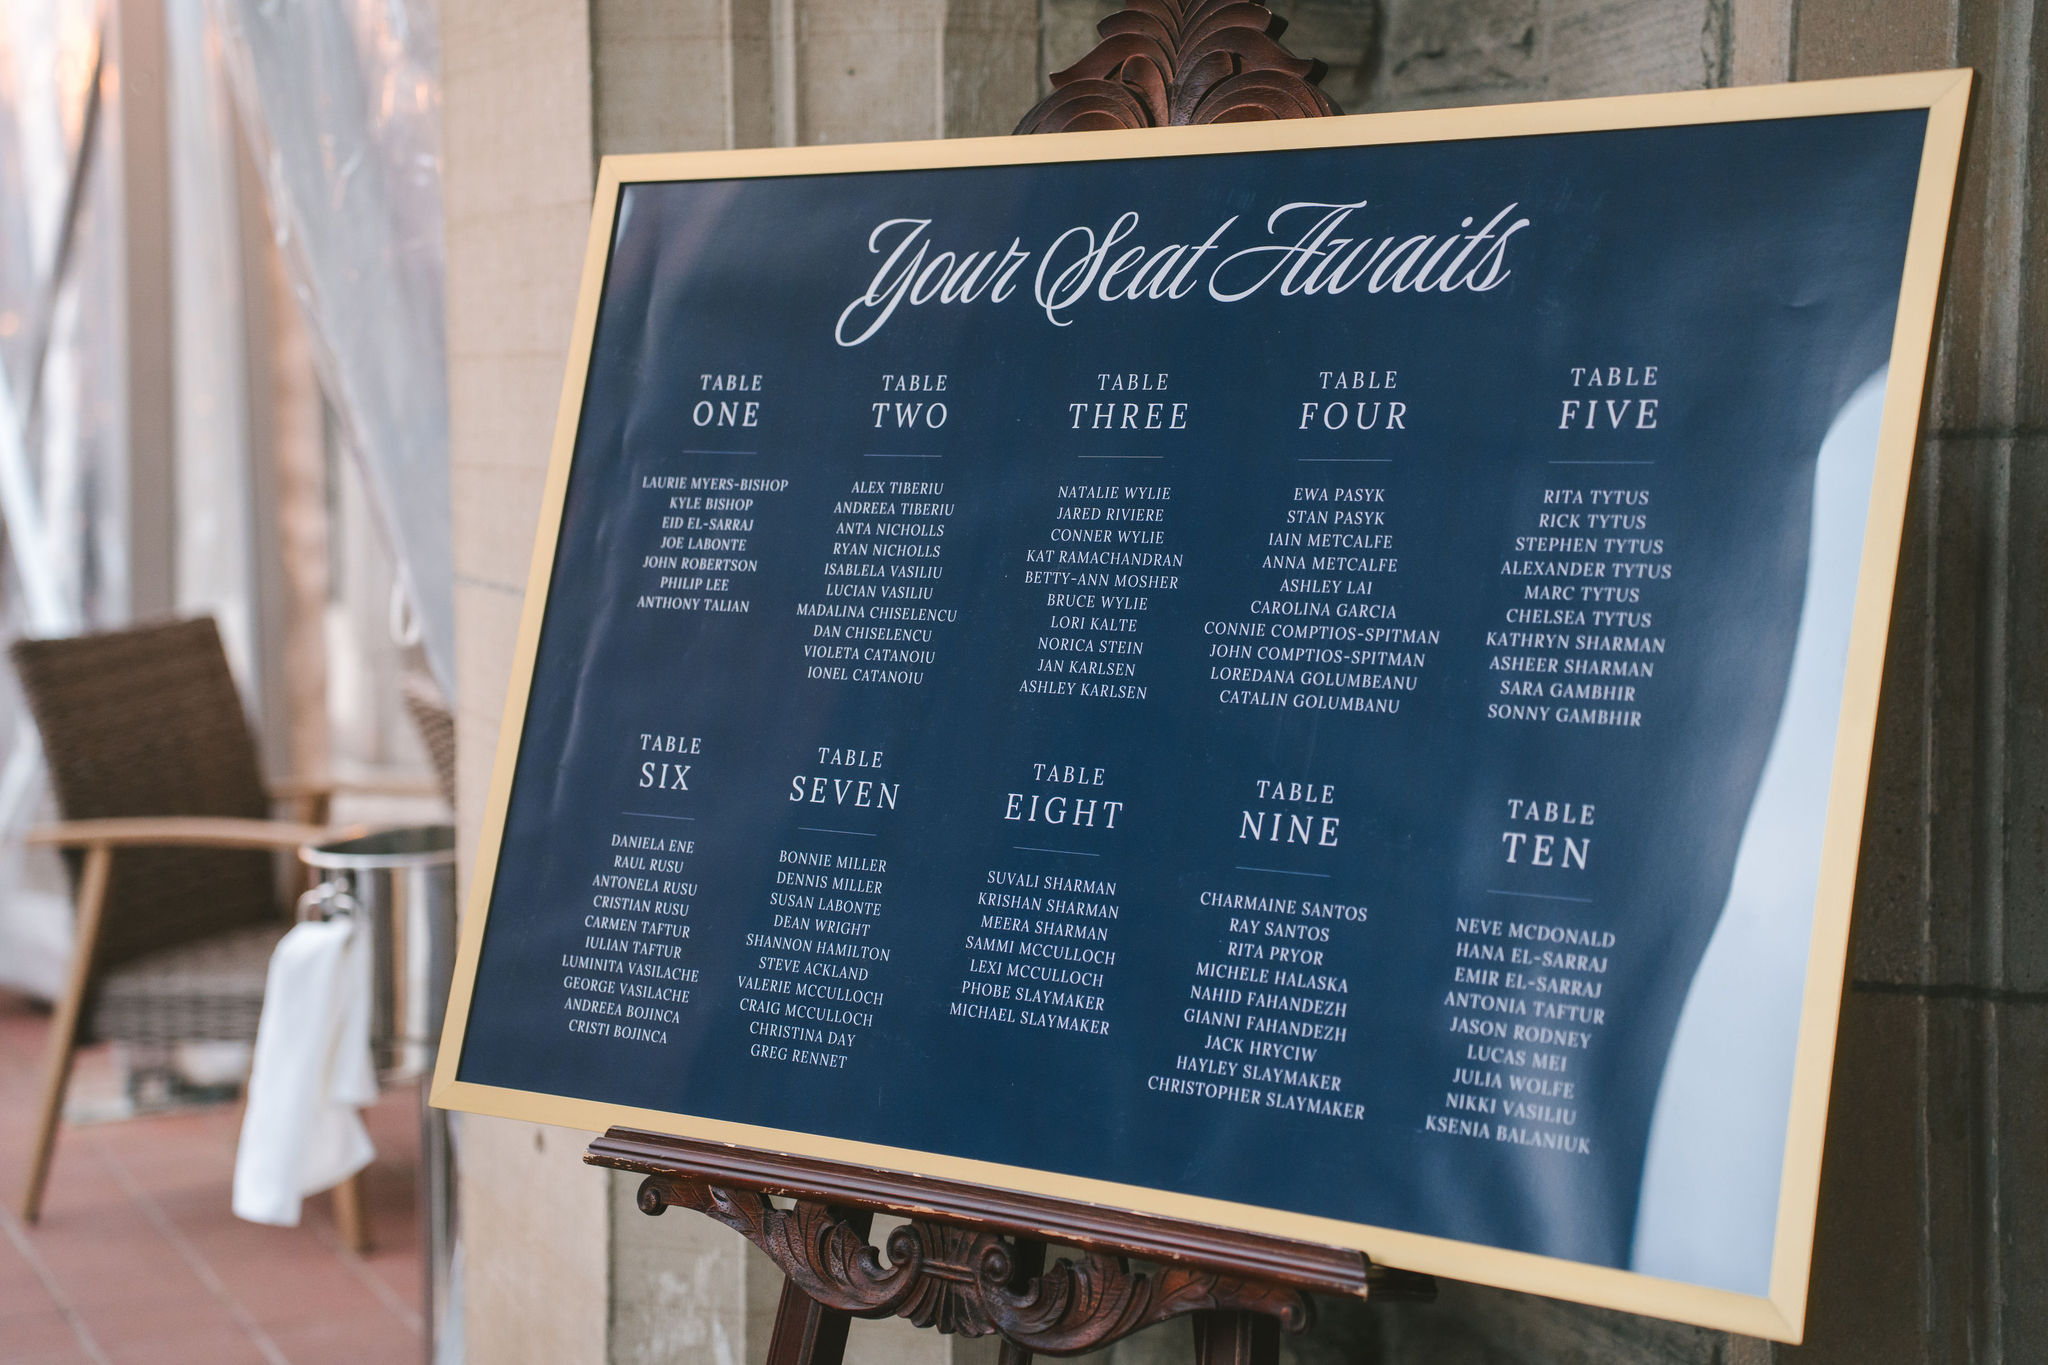 Your Seat Awaits
TABLE
ONE
LAURIE MYERS-BISHOP
KYLE BISHOP
EID EL-SARRAJ
JOE LABONTE
JOHN ROBERTSON
PHILIP LEE
ANTHONY TALIAN
TABLE
TWO
ALEX TIBERIU
ANDREEA TIBERIU
ANTA NICHOLLS
RYAN NICHOLLS
ISABLELA VASILIU
LUCIAN VASILIU
MADALINA CHISELENCU
DAN CHISELENCU
VIOLETA CATANOIU
IONEL CATANOIU
TABLE
THREE
NATALIE WYLIE
JARED RIVIERE
CONNER WYLIE
KAT RAMACHANDRAN
BETTY-ANN MOSHER
BRUCE WYLIE
LORI KALTE
NORICA STEIN
JAN KARLSEN
ASHLEY KARLSEN
TABLE
FOUR
EWA PASYK
STAN PASYK
IAIN METCALFE
ANNA METCALFE
ASHLEY LAI
CAROLINA GARCIA
CONNIE COMPTIOS-SPITMAN
JOHN COMPTIOS-SPITMAN
LOREDANA GOLUMBEANU
CATALIN GOLUMBANU
TABLE
FIVE
RITA TYTUS
RICK TYTUS
STEPHEN TYTUS
ALEXANDER TYTUS
MARC TYTUS
CHELSEA TYTUS
KATHRYN SHARMAN
ASHEER SHARMAN
SARA GAMBHIR
SONNY GAMBHIR
TABLE
SIX
DANIELA ENE
RAUL RUSU
ANTONELA RUSU
CRISTIAN RUSU
CARMEN TAFTUR
IULIAN TAFTUR
LUMINITA VASILACHE
GEORGE VASILACHE
ANDREEA BOJINCA
CRISTI BOJINCA
TABLE
SEVEN
BONNIE MILLER
DENNIS MILLER
SUSAN LABONTE
DEAN WRIGHT
SHANNON HAMILTON
STEVE ACKLAND
VALERIE MCCULLOCH
CRAIG MCCULLOCH
CHRISTINA DAY
GREG RENNET
TABLE
EIGHT
SUVALI SHARMAN
KRISHAN SHARMAN
MEERA SHARMAN
SAMMI MCCULLOCH
LEXI MCCULLOCH
PHOBE SLAYMAKER
MICHAEL SLAYMAKER
TABLE
NINE
CHARMAINE SANTOS
RAY SANTOS
RITA PRYOR
MICHELE HALASKA
NAHID FAHANDEZH
GIANNI FAHANDEZH
JACK HRYCIW
HAYLEY SLAYMAKER
CHRISTOPHER SLAYMAKER
TABLE
TEN
NEVE MCDONALD
HANA EL-SARRAJ
EMIR EL-SARRAJ
ANTONIA TAFTUR
JASON RODNEY
LUCAS MEI
JULIA WOLFE
NIKKI VASILIU
KSENIA BALANIUK